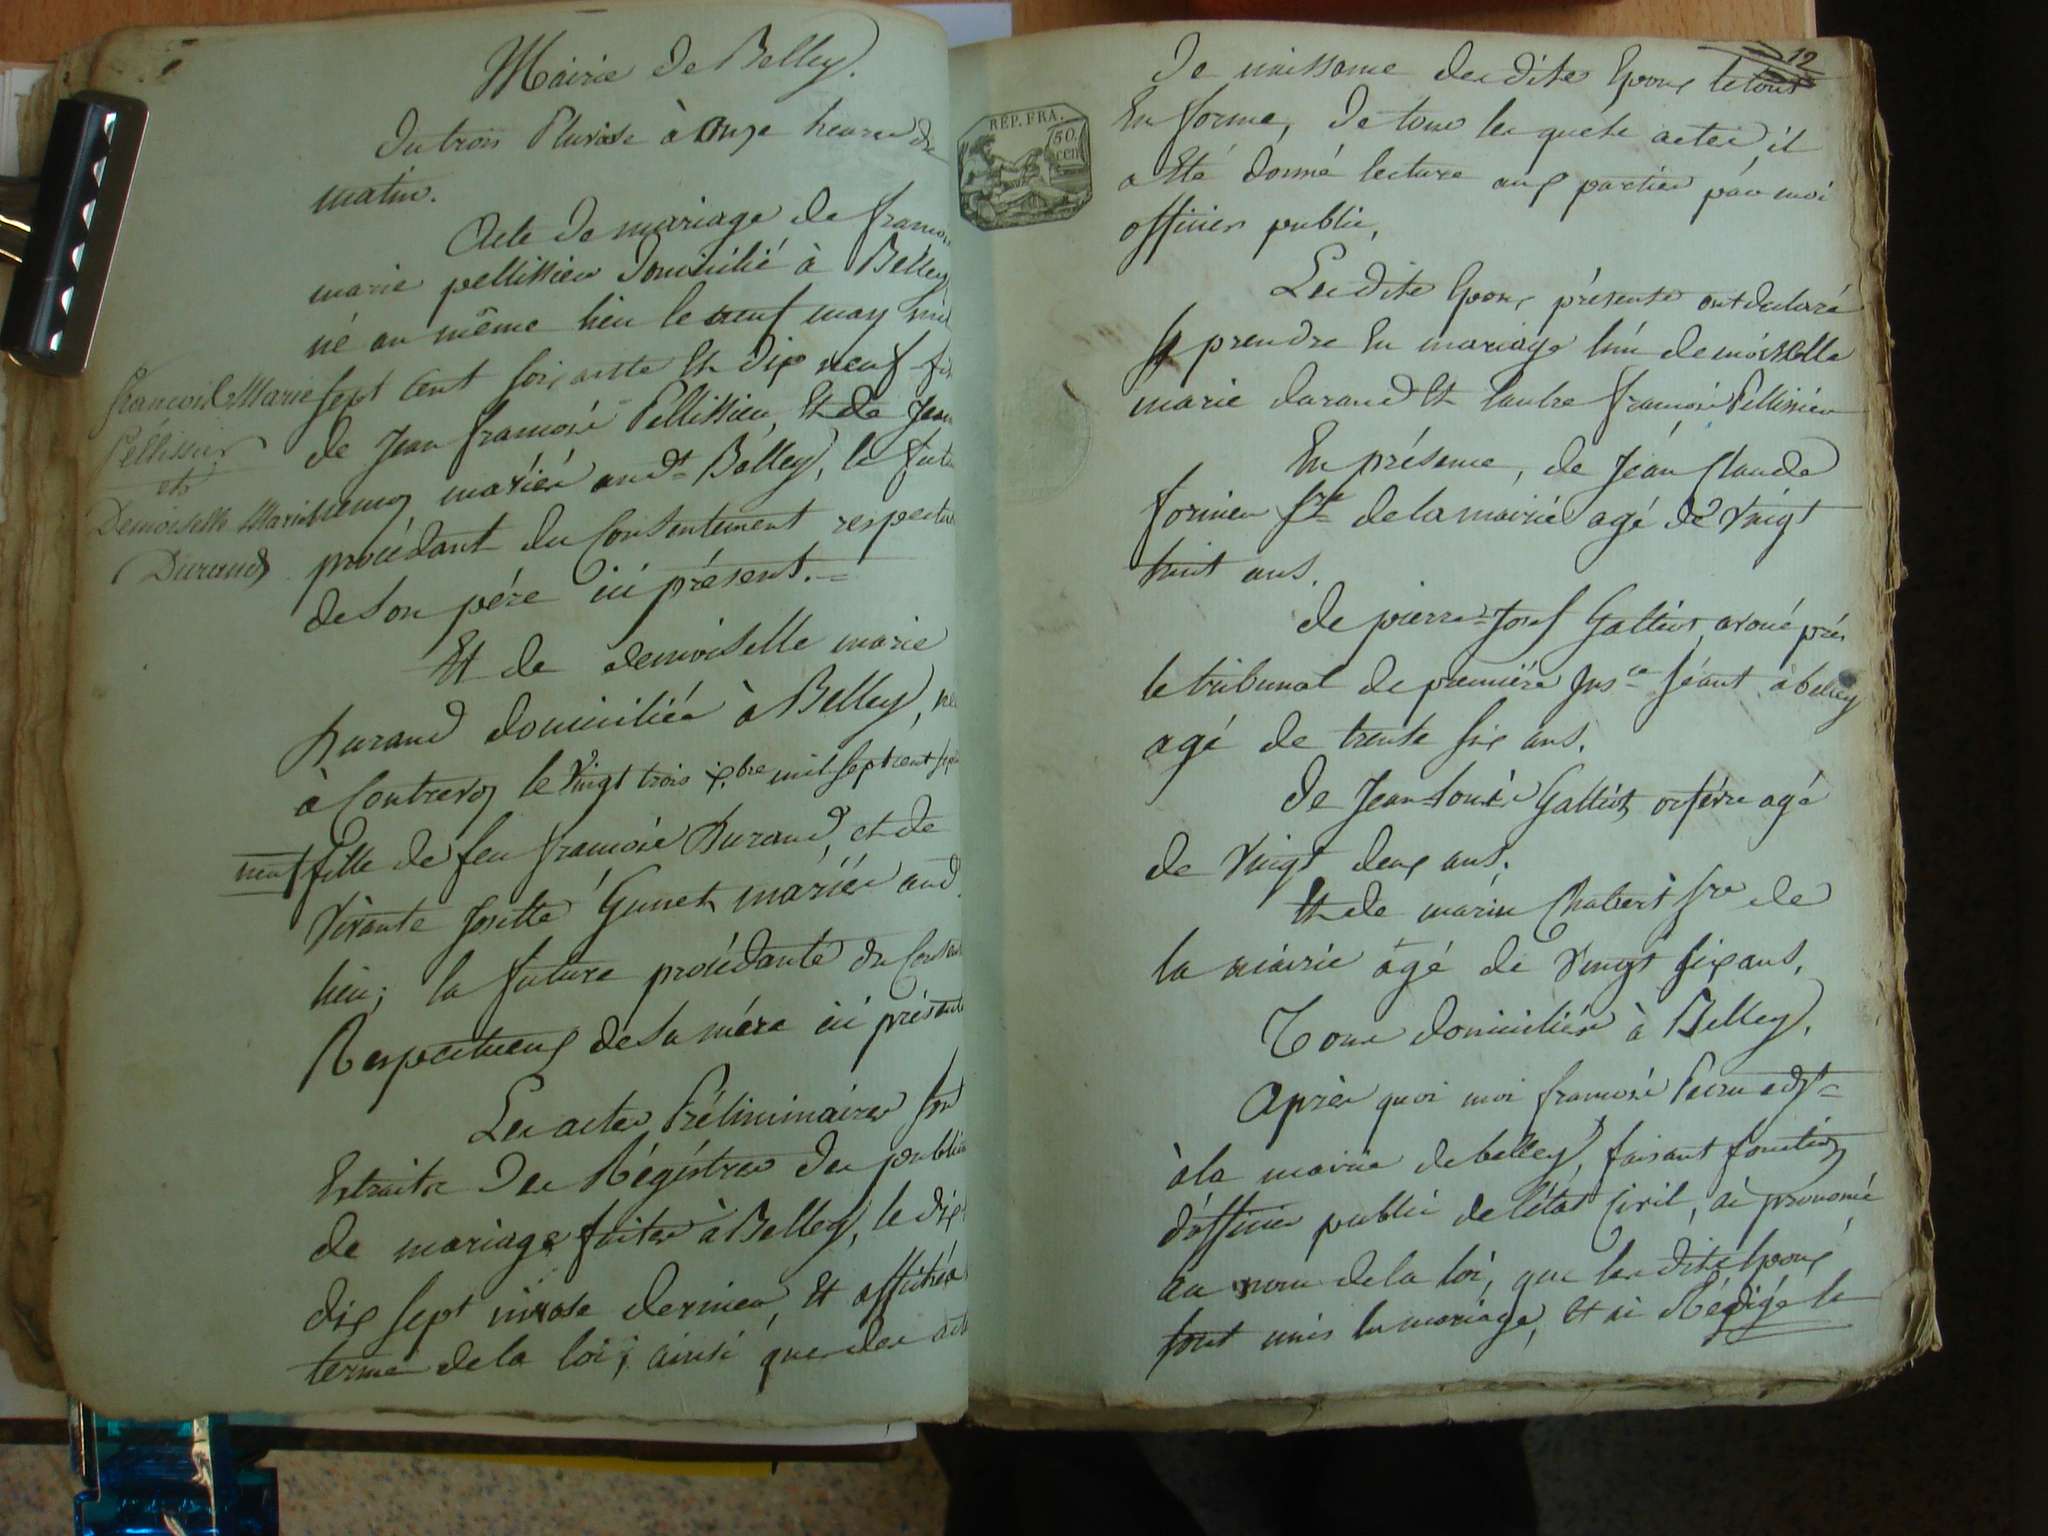 Mairie de Belley.
Du trois Pluviose à onze heures du
matin.
Acte de mariage de françois
marie pellissier domicilié à Belley
né au même lieu le neuf may mil
sept cent soixante et dix neuf fils
de Jean françois Pellissier, et de Jeanne
mariés aud.t Belley, le futur
procédant du Consentement respectueux
de son père ici présent.
Et de demoiselle marie
Durand domiciliée à Belley, née
à Contrevoz le vingt trois xbre mil sept cent soixante
neuf fille de feu françois Durand, et de
vivante Josette Gunet, mariés aud.
lieu; la future procédante du Consent
Respectueux de sa mère ici présente
Les actes Préliminaires sont
Extraits des Régistres des publica
de mariage faites à Belley, le dix
dix sept nivose dernier, et affichés
terme de la loi; ainsi que des actes
françois Marie
Pellissier
et
Demoiselle Marie
Durand
REP. FRA.
50
cent
12
De naissance desdits Epoux le tout
En forme, De tous les quels actes il
a Eté donné lecture aux parties par moi
officier public,
Lesdits Epoux présents ont déclaré
se prendre En mariage l'un demoiselle
marie durand Et l'autre françois Pellissier
En présence, de Jean Claude
forinier S.re de la mairie agé de vingt
huit ans.
de pierre Josef Galliot, avoué près
le tribunal de première Ins.ce séant à belley
agé de trente six ans.
de Jean Louis Galliot orfèvre agé
de vingt deux ans.
Et de marin Chabert S.re de
la mairie âgé de vingt six ans,
Tous domiciliés à Belley,
Après quoi moi françois adj.t
à la mairie de belley, faisant fonction
d'officier public de l'état Civil, ai prononcé
au nom de la loi, que lesdits Epoux
sont unis En mariage, Et ai Rédigé le